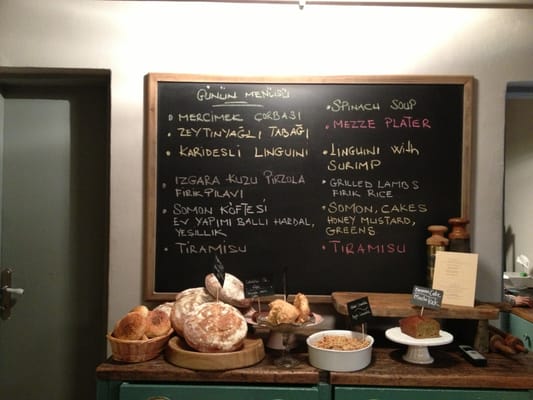 GÜNÜN MENÜSÜ
MERCİMEK ÇORBASI
ZEYTİNYAĞLI TABAĞI
KARİDESLİ LINGUINI
IZGARA KUZU PİRZOLA
FIRIK PİLAVI
SOMON KÖFTESİ
EV YAPIMI BALLI HARDAL,
YEŞİLLİK
TIRAMISU
SPINACH SOUP
MEZZE PLATER
LINGUINI WITH
SURIMP
GRILLED LAMBS
FIRIK RICE
SOMON, CAKES
HONEY MUSTARD,
GREENS
TIRAMISU